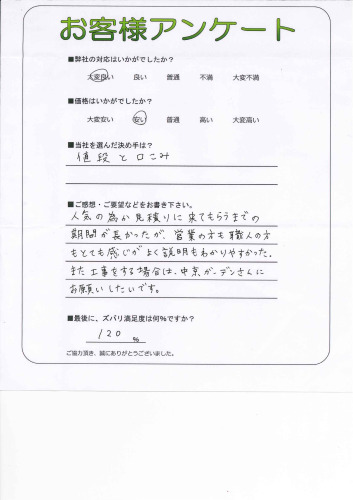 お客様アンケート
■弊社の対応はいかがでしたか?
大変良い 良い 普通 不満 大変不満
■価格はいかがでしたか?
大変安い 安い 普通 高い 大変高い
■当社を選んだ決め手は?
値段と口こみ
■ご感想・ご要望などをお書き下さい。
人気の為か見積りに来てもらうまでの
期間が長かったが、営業の方も職人の方
もとても感じがよく説明もわかりやすかった。
また工事をする場合は、中京ガーデンさんに
お願いしたいです。
■最後に、ズバリ満足度は何%ですか?
120 %
ご協力頂き、誠にありがとうございました。